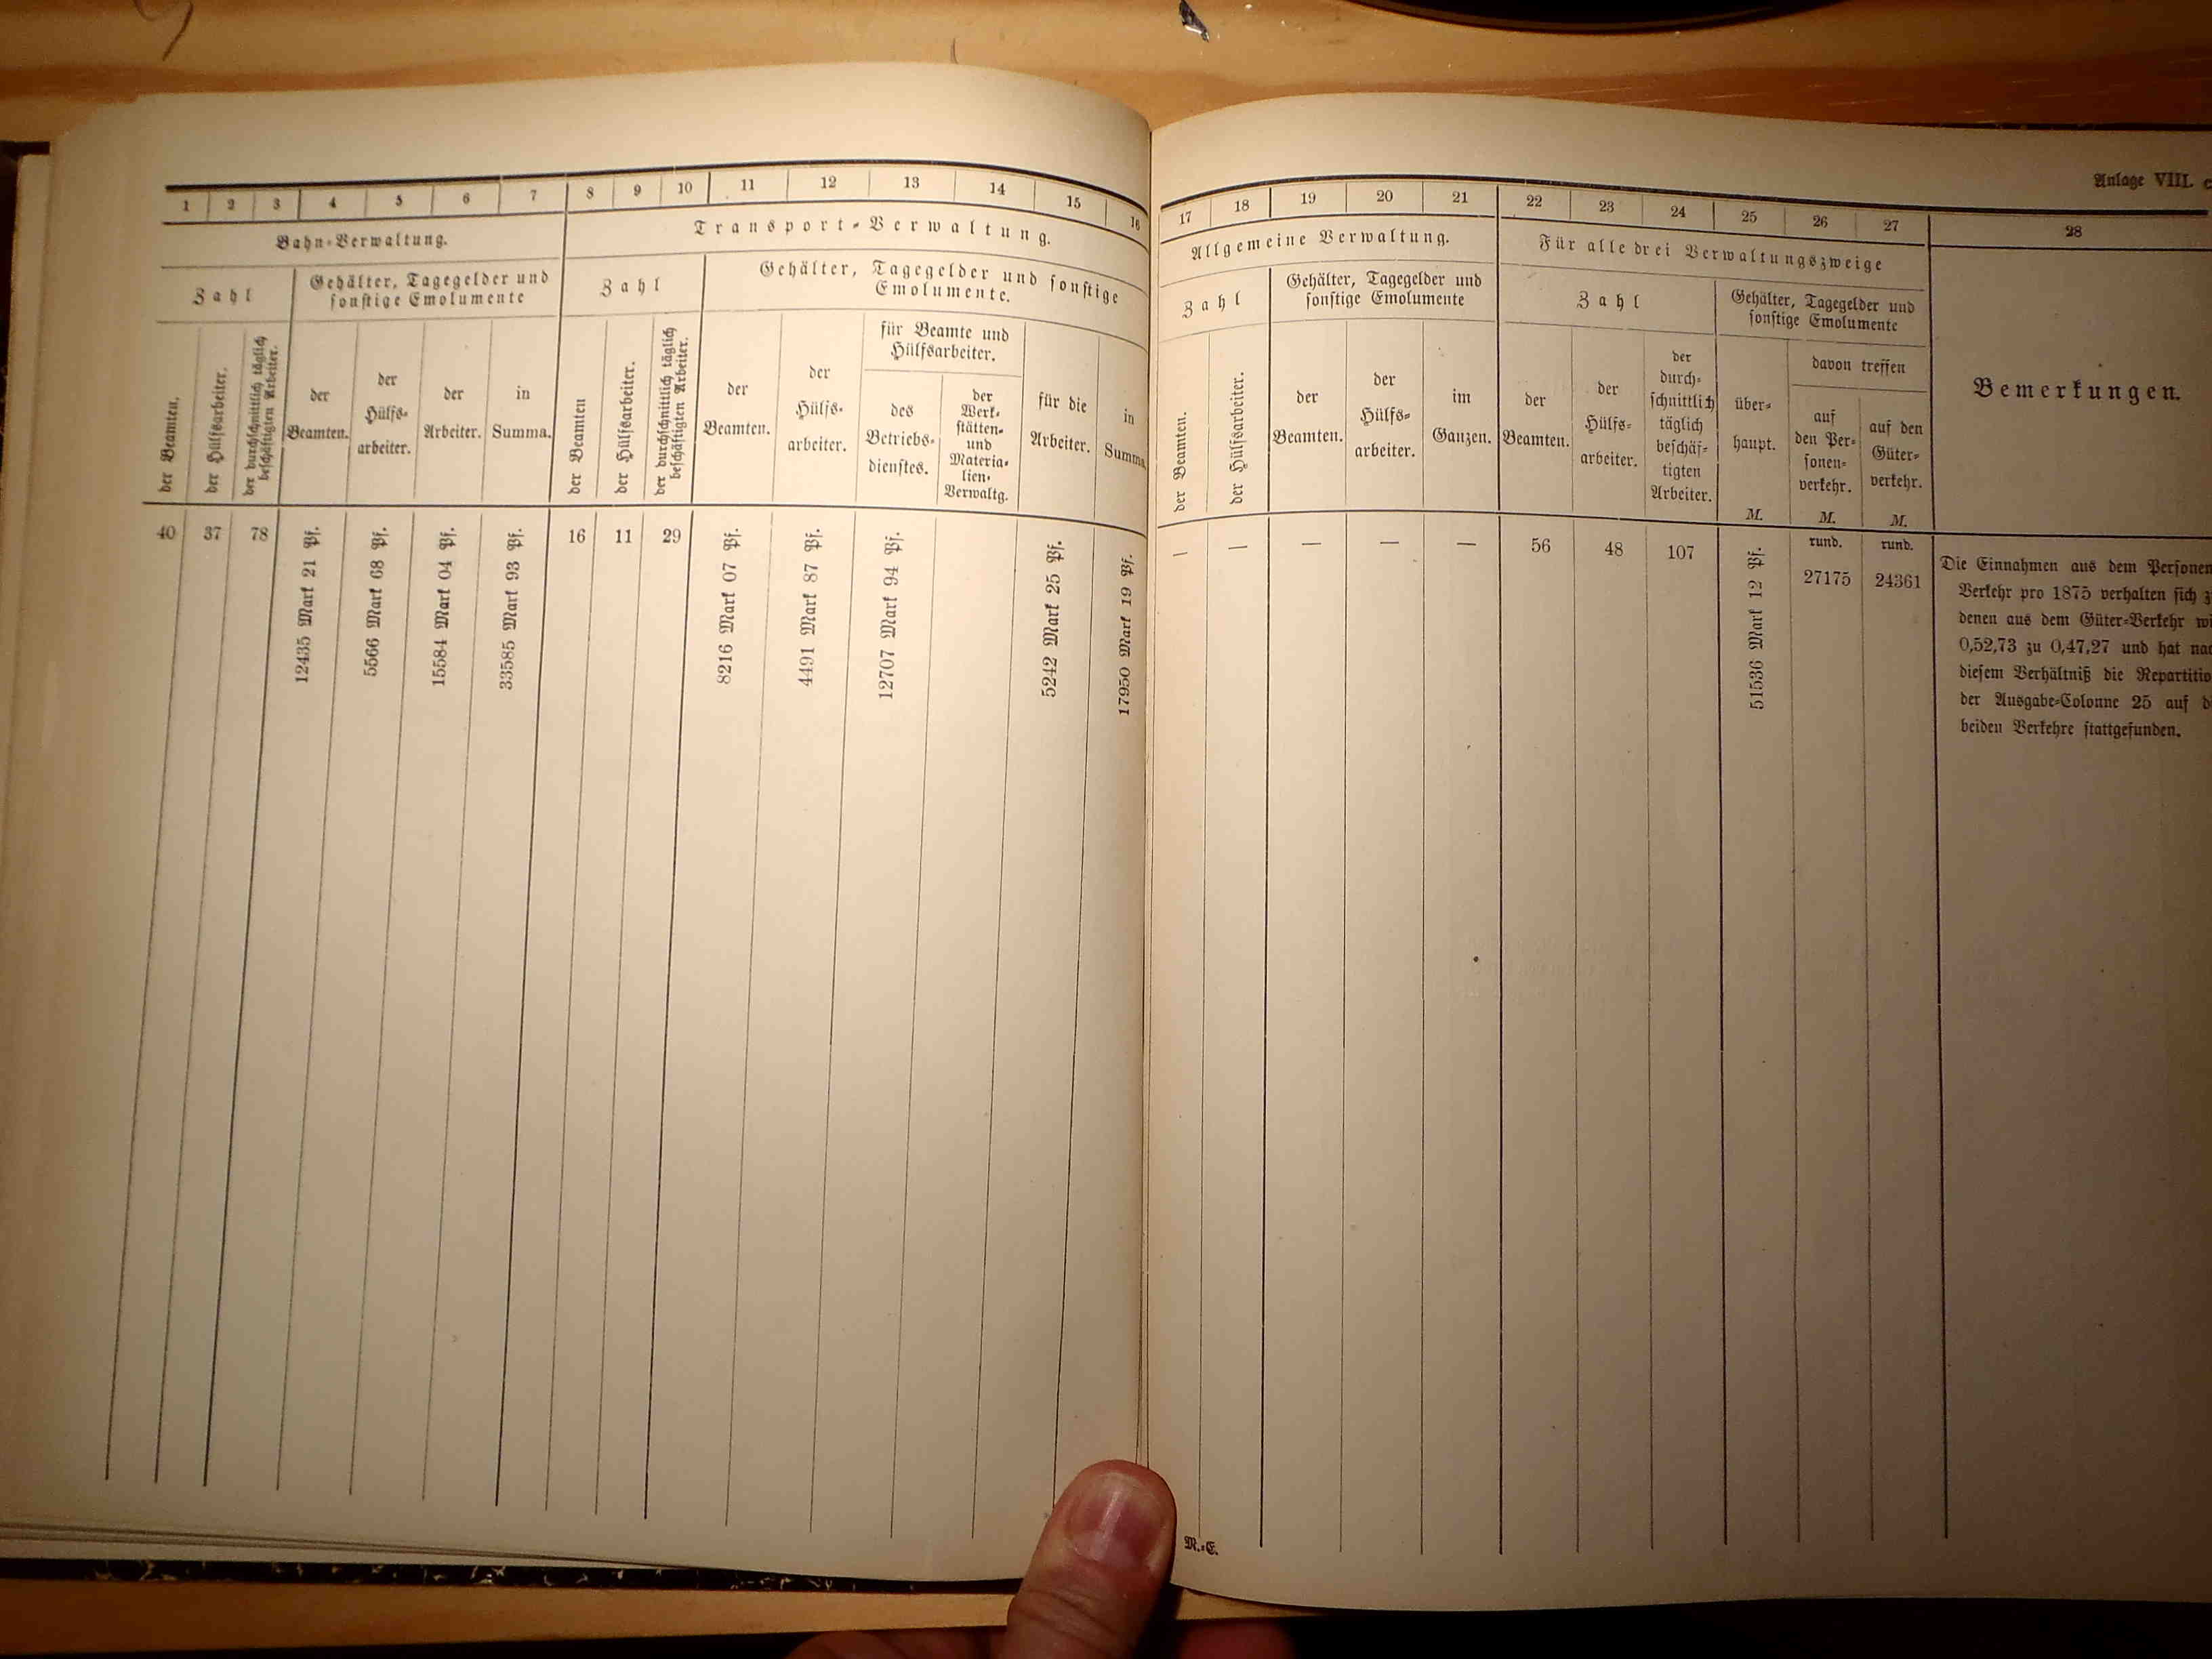 1 2 3 4 5 6 7 8 9 10 11 12 13 14 15 16
Bahn-Verwaltung.
Transport-Verwaltung.
Zahl
Gehälter, Tagegelder und
sonstige Emolumente
Zahl
Gehälter, Tagegelder und sonstige
Emolumente.
der Beamten.
der Hülfsarbeiter.
der durchschnittlich täglich
beschäftigten Arbeiter.
der
Beamten.
der
Hülfs-
arbeiter.
der
Arbeiter.
in
Summa.
der Beamten
der Hülfsarbeiter.
der durchschnittlich täglich
beschäftigten Arbeiter.
der
Beamten.
der
Hülfs-
arbeiter.
für Beamte und
Hülfsarbeiter.
des
Betriebs-
dienstes.
der
Werk-
stätten-
und
Materia-
lien-
Verwaltg.
für die
Arbeiter.
in
Summa
40 37 78
12435 Mark 21 Pf.
5566 Mark 68 Pf.
15584 Mark 04 Pf.
33585 Mark 93 Pf.
16 11 29
8216 Mark 07 Pf.
4491 Mark 87 Pf.
12707 Mark 94 Pf.
5242 Mark 25 Pf.
17950 Mark 19 Pf.
Anlage VIII. c
17 18 19 20 21 22 23 24 25 26 27 28
Allgemeine Verwaltung.
Für alle drei Verwaltungszweige
Zahl
Gehälter, Tagegelder und
sonstige Emolumente
Zahl
Gehälter, Tagegelder und
sonstige Emolumente
der Beamten.
der Hülfsarbeiter.
der
Beamten.
der
Hülfs-
arbeiter.
im
Ganzen.
der
Beamten.
der
Hülfs-
arbeiter.
der
durch-
schnittlich
täglich
beschäf-
tigten
Arbeiter.
über-
haupt.
M.
davon treffen
auf
den Per-
sonen-
verkehr.
M.
auf den
Güter-
verkehr.
M.
Bemerkungen.
— — — — — 56 48 107
51536 Mark 12 Pf.
rund.
27175
rund.
24361
Die Einnahmen aus dem Personen
Verkehr pro 1875 verhalten sich z
denen aus dem Güter-Verkehr wi
0,52,73 zu 0,47,27 und hat nac
diesem Verhältniß die Repartitio
der Ausgabe-Colonne 25 auf d
beiden Verkehre stattgefunden.
M.-E.